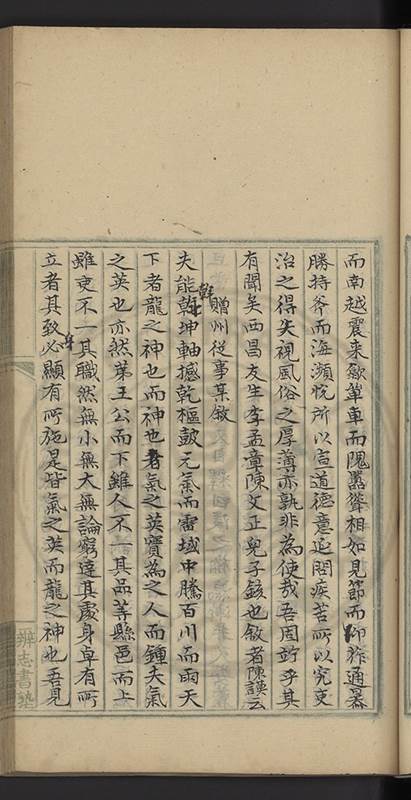 而南越震来歙單車而隗囂聳相如見節而卭莋通暴
勝持斧而海濒悦所以宣道德意逅問疾苦所以究吏
治之得失視風俗之厚薄亦孰非為使哉吾固竚乎其
有聞矣西昌友生李孟章陳文正兒子錂也敘者陳謨云
贈州從事某敘
夫能乾幹坤軸撼乾樞鼓元氣而雷域中騰百川而雨天
下者龍之神也而神也者氣之英實為之人而鍾夫氣
之英也亦然第王公而下雖人不一其品等縣邑而上
雖吏不一其職然無小無大無論窮達其處身卓有所
立者其致必顯有所施是皆氣之英而龍之神也吾見
辨志書塾